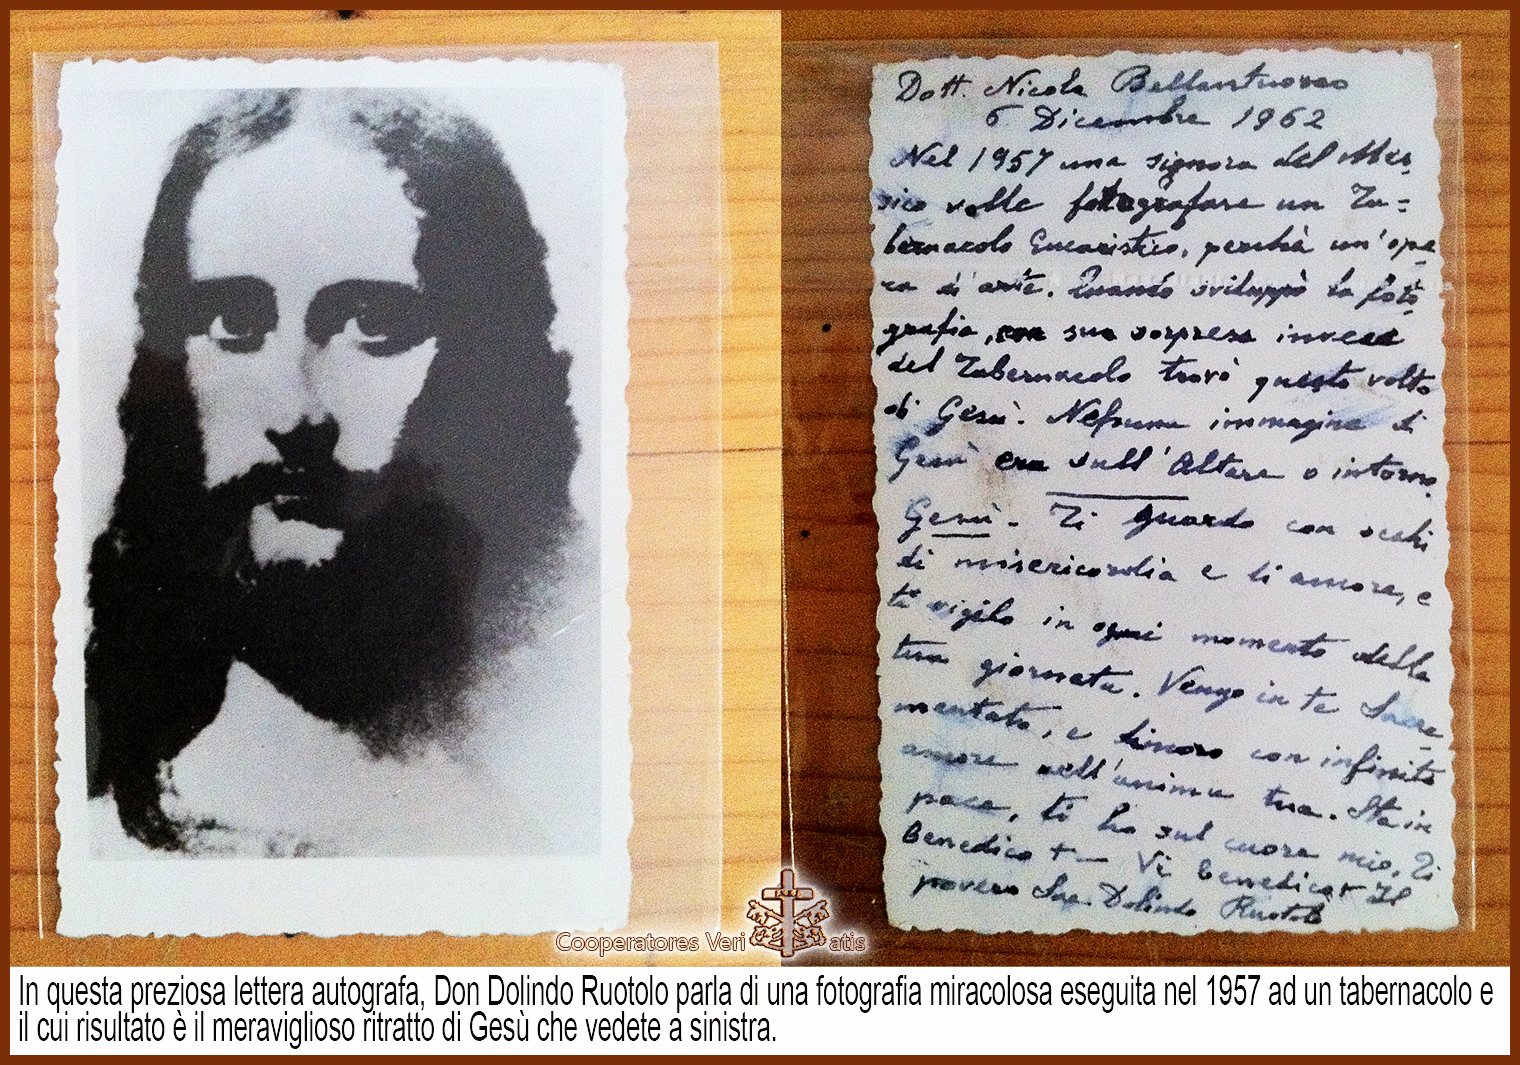 Dott. Nicola Bellantuono
6 Dicembre 1962
Nel 1957 una signora del Mes-
sico volle fotografare un Ta=
bernacolo Eucaristico, perchè un'ope
ra d'arte. Quando sviluppò la foto
grafia, con sua sorpresa invece
del Tabernacolo trovò questo volto
di Gesù. Nessuna immagine di
Gesù era sull'Altare o intorno.
Gesù - Ti guardo con occhi
di misericordia e di amore, e
ti vigilo in ogni momento della
tua giornata. Vengo in te Sacra
mentato, e dimoro con infinito
amore nell'anima tua. Sta in
pace, ti ho sul cuore mio. Ti
Benedico + Vi benedico + Il
povero Sac. Dolindo Ruotolo
Cooperatores Veritatis
In questa preziosa lettera autografa, Don Dolindo Ruotolo parla di una fotografia miracolosa eseguita nel 1957 ad un tabernacolo e
il cui risultato è il meraviglioso ritratto di Gesù che vedete a sinistra.